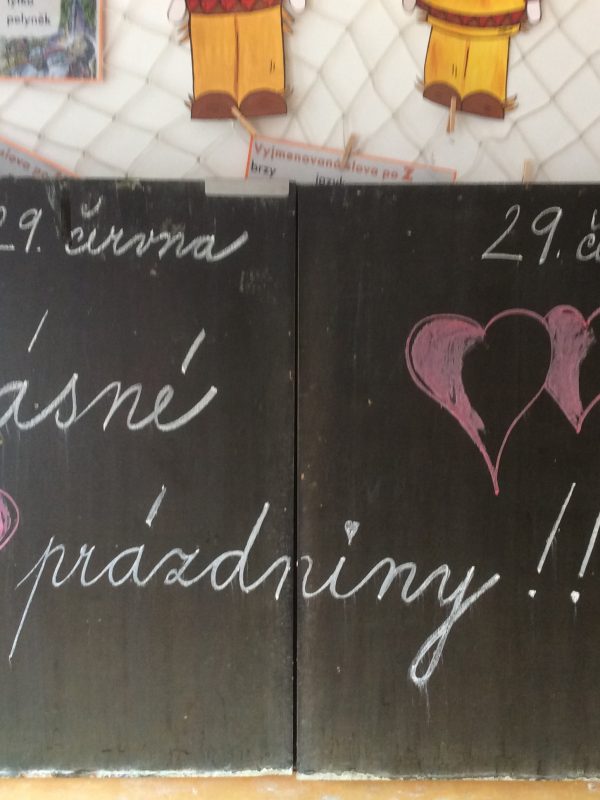 pelyněk
Vyjmenovaná slova po Z
brzy jazyk
slova po
29. června
29. če
ásné
prázdniny !!